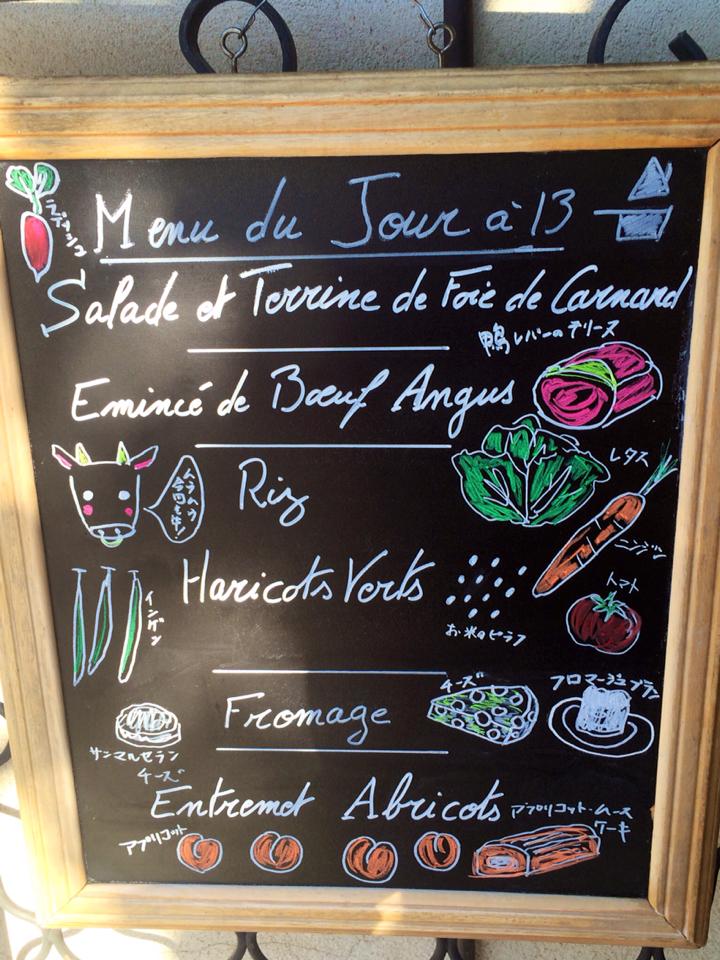 Menu du Jour à 13
ラディッシュ
Salade et Terrine de Foie de Carnard
鴨レバーのテリーヌ
Emincé de Bœuf Angus
レタス
今回も牛!
Riz
ニンジン
Haricots Verts
インゲン
トマト
お米のピラフ
チーズ
フロマージュブラン
Fromage
サンマルセラン
チーズ
Entremet Abricots
アプリコット・ムース
ケーキ
アプリコット